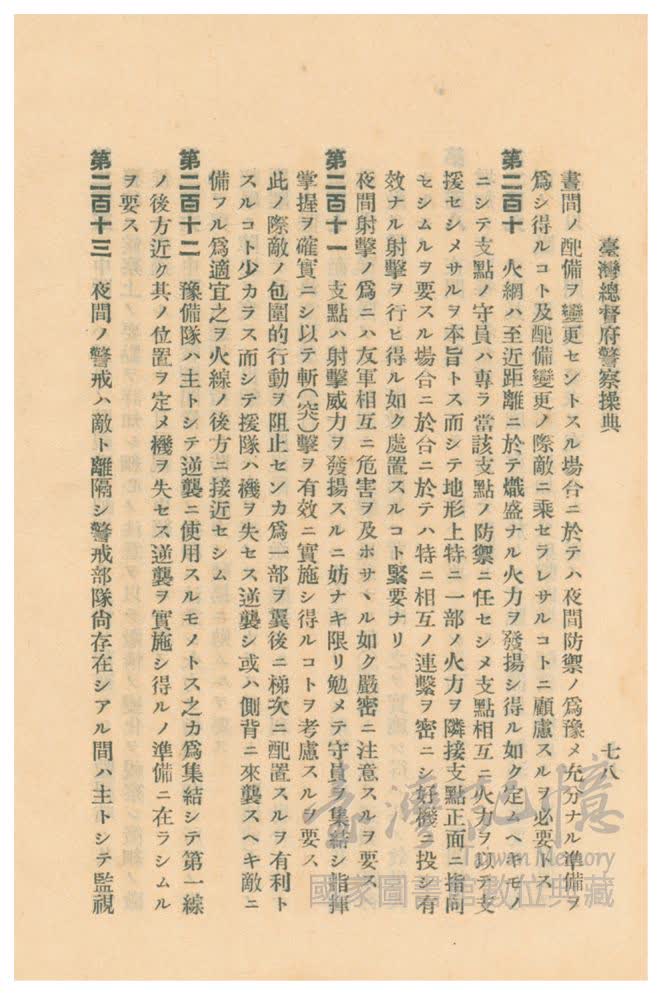 臺灣總督府警察操典
七八
晝間ノ配備ヲ變更セントスル場合ニ於テハ夜間防禦ノ爲豫メ充分ナル準備ヲ
爲シ得ルコト及配備變更ノ際敵ニ乘セラレサルコトニ顧慮スルヲ必要トス
第二百十 火網ハ至近距離ニ於テ熾盛ナル火力ヲ發揚シ得ル如ク定ムヘキモノ
ニシテ支點ノ守員ハ專ラ當該支點ノ防禦ニ任セシメ支點相互ニ火力ヲ以テ支
援セシメサルヲ本旨トス而シテ地形上特ニ一部ノ火力ヲ隣接支點正面ニ指向
セシムルヲ要スル場合ニ於台ニ於テハ特ニ相互ノ連繫ヲ密ニシ好機ニ投シ有
效ナル射擊ヲ行ヒ得ル如ク處置スルコト緊要ナリ
夜間射擊ノ爲ニハ友軍相互ニ危害ヲ及ホサヽル如ク嚴密ニ注意スルヲ要ス
第二百十一 支點ハ射擊威力ヲ發揚スルニ妨ナキ限リ勉メテ守員ヲ集結シ指揮
掌握ヲ確實ニシ以テ斬(突)擊ヲ有效ニ實施シ得ルコトヲ考慮スルヲ要ス
此ノ際敵ノ包圍的行動ヲ阻止センカ爲一部ヲ翼後ニ梯次ニ配置スルヲ有利ト
スルコト少カラス而シテ援隊ハ機ヲ失セス逆襲シ或ハ側背ニ來襲スヘキ敵ニ
備フル爲適宜之ヲ火線ノ後方ニ接近セシム
第二百十二 豫備隊ハ主トシテ逆襲ニ使用スルモノトス之カ爲集結シテ第一線
ノ後方近ク其ノ位置ヲ定メ機ヲ失セス逆襲ヲ實施シ得ルノ準備ニ在ラシムル
ヲ要ス
第二百十三 夜間ノ警戒ハ敵ト離隔シ警戒部隊尙存在シアル間ハ主トシテ監視
臺灣記憶
Taiwan Memory
國家圖書館數位典藏